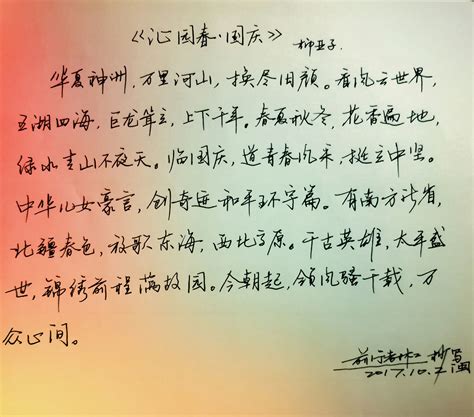 《沁园春·国庆》 柳亚子
华夏神洲，万里河山，换尽旧颜。看风云世界，
五湖四海，巨龙耸立，上下千年。春夏秋冬，花香遍地，
绿水青山不夜天。临国庆，道青春风采，挺立中坚。
中华儿女豪言，创奇迹和平环宇篇。有南方诗省，
北疆春色，放歌东海，西北高原。千古英雄，太平盛
世，锦绣前程满故园。今朝起，领风骚千载，万
众心间。
抄写
2017.10.2